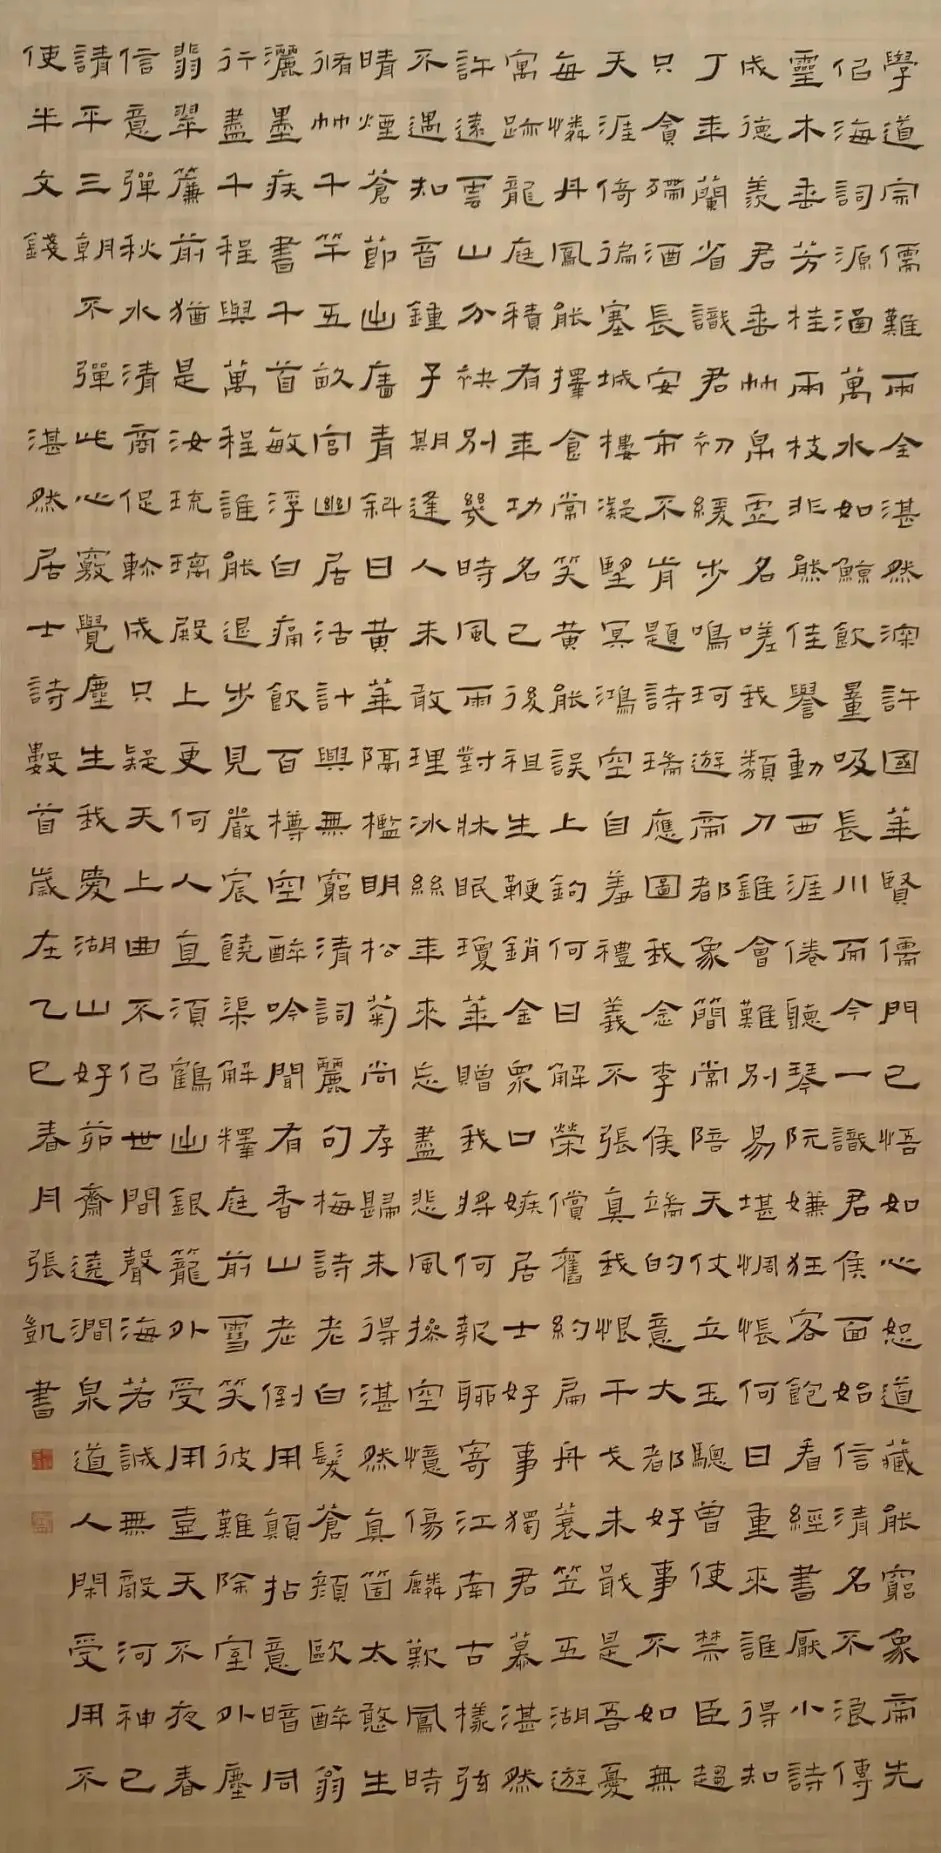 學道宗儒難兩全湛然深許國華賢儒門已悟如心恕道藏能窮象帝先
佀海詞源涵萬水如鯨飲量吸長川而今一識君侯面始信清名不浪傳
靈木垂芳桂兩枝非熊佳譽動西涯倦聽琴阮嫌狂客飽看經書厭小詩
成德羨君垂竹帛虛名嗟我類刀錐會難別易堪惆悵何日重來誰得知
丁年蘭省識君初緩步鳴珂遊帝都象簡常陪天仗立玉驄曾使禁臣趨
只貪殢酒長安市不肯題詩瑞應圖我念李侯端的意大都好事不如無
天涯倚徧塞城樓凝望冥鴻空自羞禮義不張真我恨干戈未戢是吾憂
每憐丹鳳能擇食常笑黃能誤上鉤何日解榮償舊約扁舟蓑笠五湖遊
寓跡龍庭積有年功名已後祖生鞭銷金衆口嫉居士好事獨君慕湛然
許遠雲山分袂別幾時風雨對牀眠瓊華贈我將何報聊寄江南古樣弦
不遇知音鍾子期逢人未敢理冰絲年來忘盡悲風操空憶傷麟歎鳳時
晴煙蒼節出舊青斜日黃華隔檻明松菊尚存歸未得湛然真箇太憨生
脩竹千竿五畝宮幽居活計興無窮清詞麗句梅詩老白髮蒼顏歐醉翁
灑墨疾書千首敏浮白痛飲百樽空醉吟聞有香山老倒用顛拈意暗同
行盡千程與萬程誰能退步見嚴宸饒渠解釋庭前雪笑彼難除室外塵
翡翠簾前猶是汝琉璃殿上更何人直須鶴出銀籠外受用壺天不夜春
信意彈秋水清商促軫成只疑天上曲不佀世間聲海若誠無敵河神已
請平三朝不彈此心竅覺塵生我愛湖山好茆齋遶澗泉道人閑受用不
使半文錢 湛然居士詩數首歲在乙巳春月張凱書